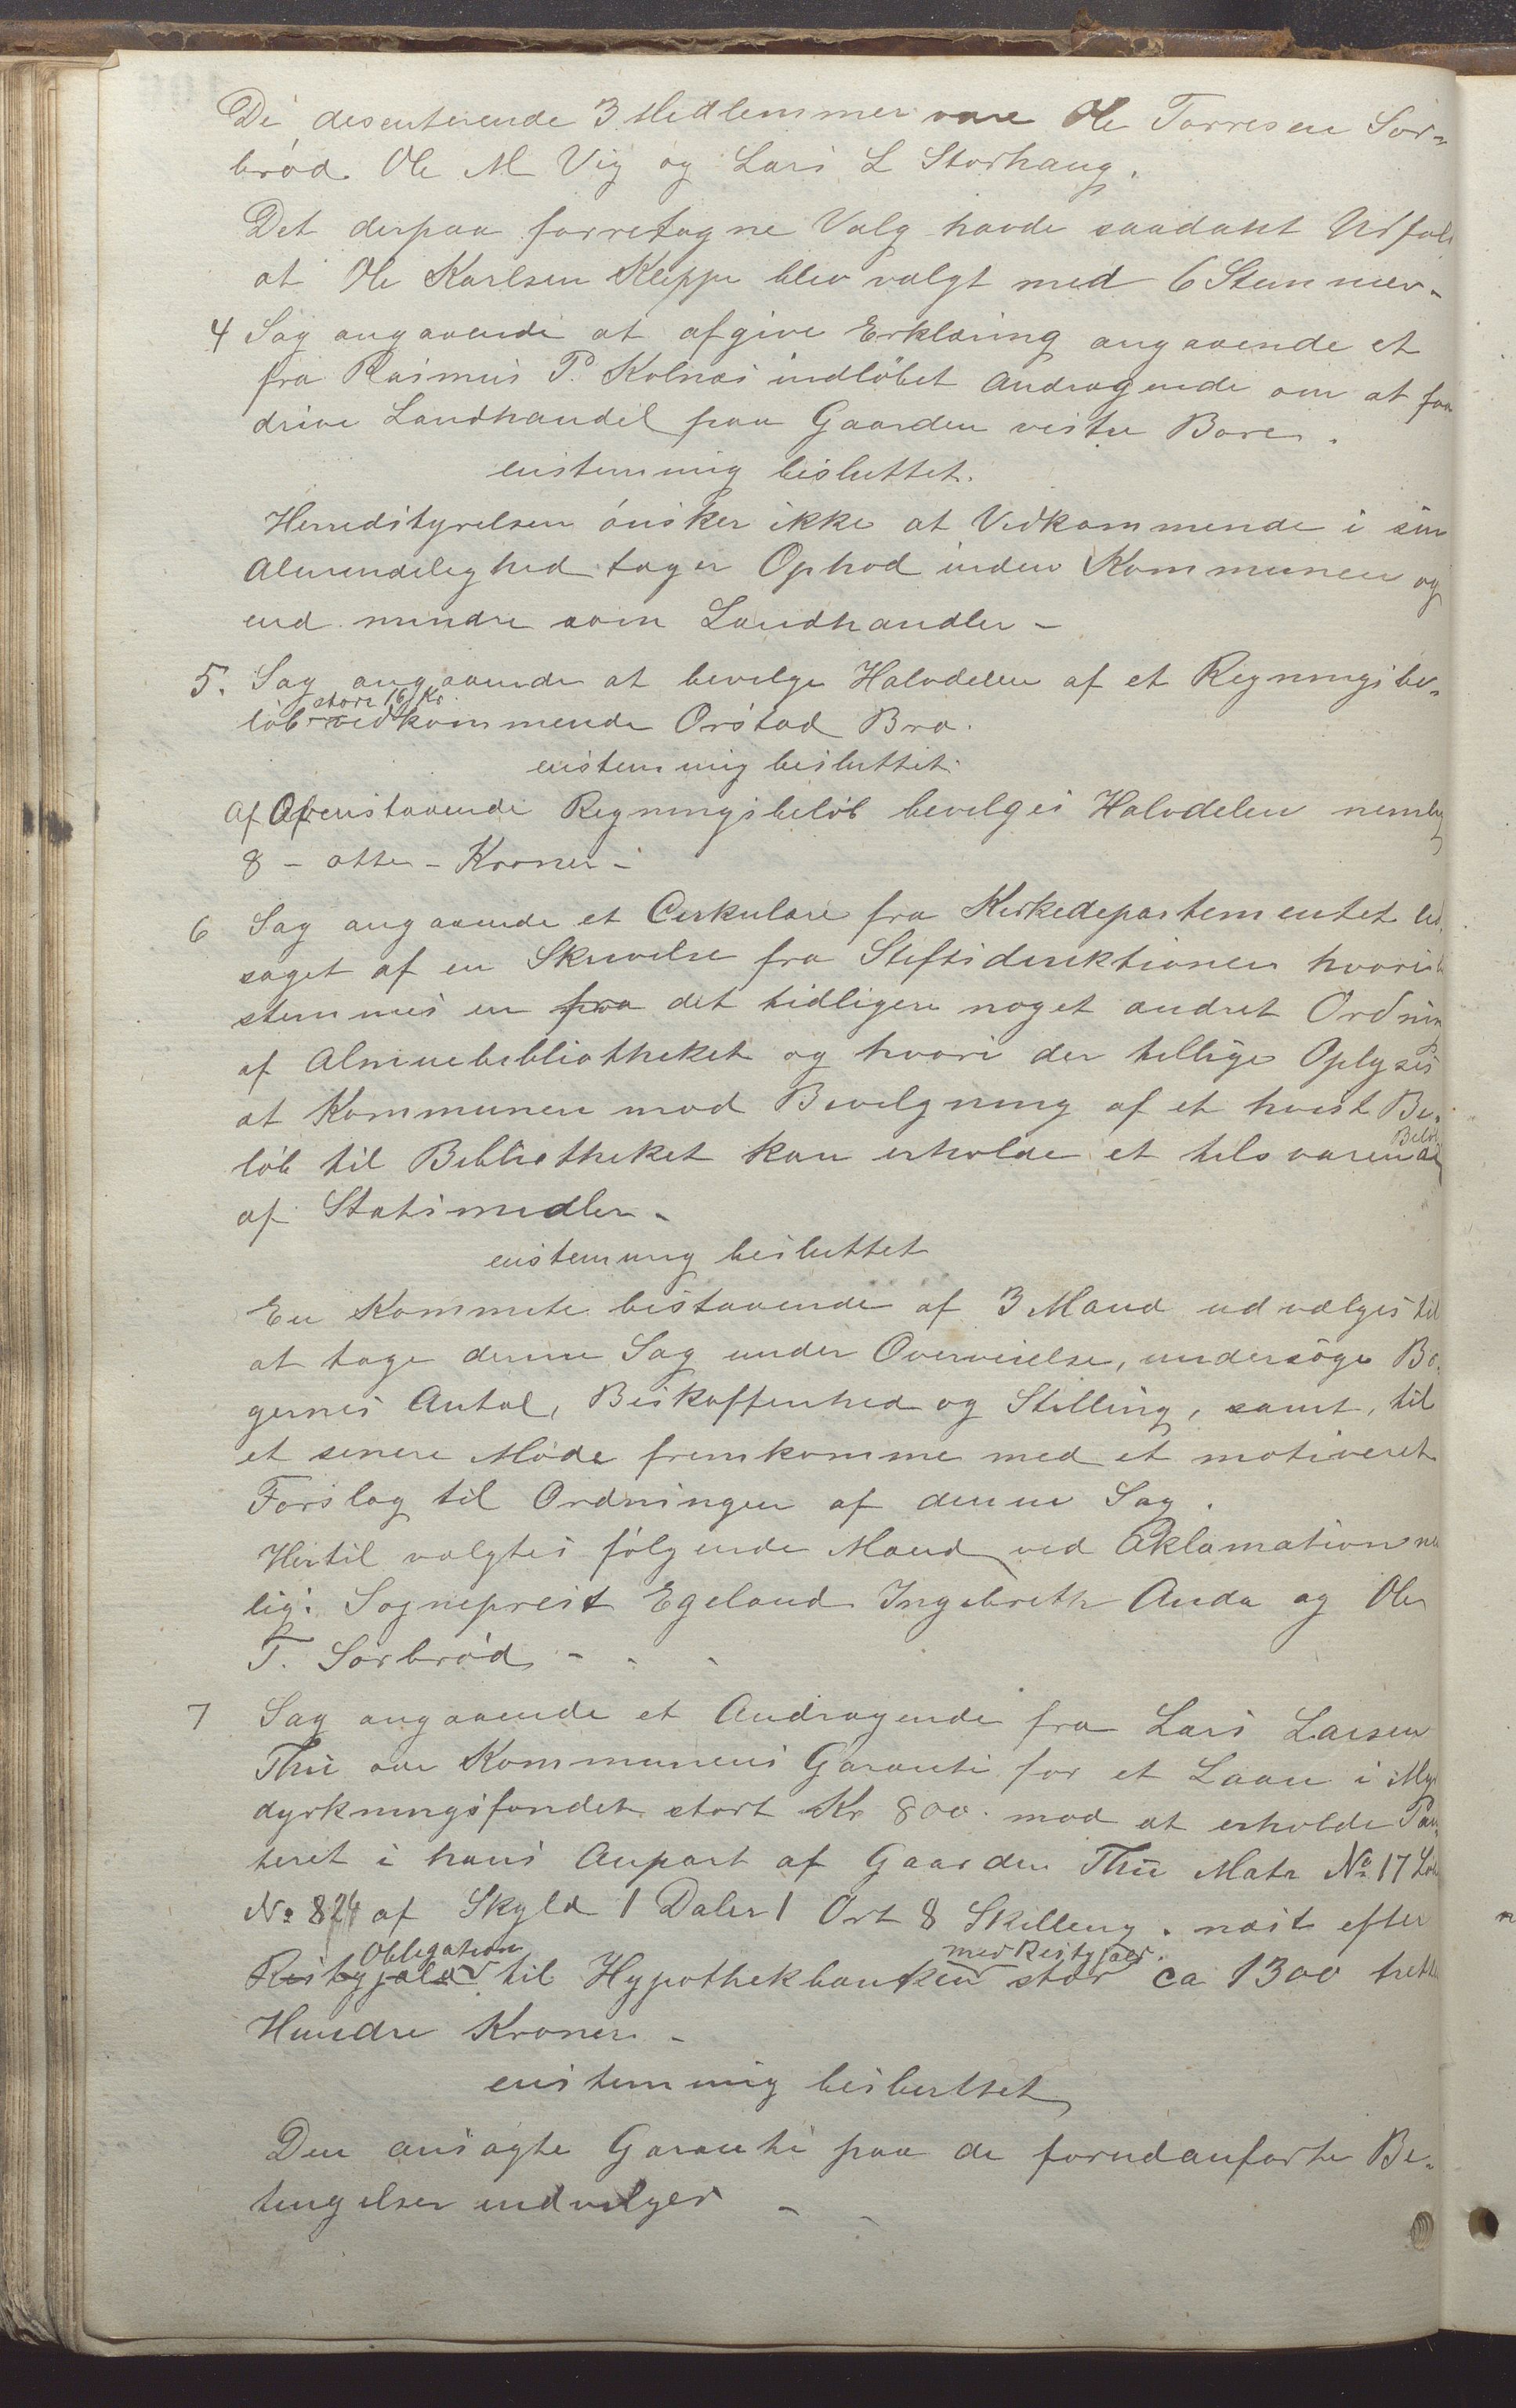 De desenterende 3 Medlemmer vare Ole Torresen Sør-
brød. Ole M Vig og Lars L Storhaug.
Det derpaa forretagne Valg havde saadant Udfald
at Ole Karlsen Kleppe blev valgt med 6 Stemmer-
4 Sag angaaende at afgive Erklæring angaaende et
fra Rasmus P. Kolnæs indløbet Andragende om at faa
drive Landhandel paa Gaarden vestre Bore.
enstemmig besluttet.
Herredstyrelsen ønsker ikke at Vedkommende i sin
Almindelighed tager Ophod inden Kommunen og
end mindre som Landhandler -
5. Sag angaaende at bevelge Halvdelen af et Regningsbe-
løb store 16 Kr. vedkommende Orstad Bro.
enstemmig besluttet.
Af Ovenstaaende Regningsbeløb bevelges Halvdelen nemlig
8 - otte - Kroner -
6 Sag angaaende et Cirkulære fra Kirkedepartementet led-
saget af en Skrivelse fra Stiftsdirektionen hvori be
stemmes en fra det tidligere noget andret Ordning
af Almuebibliotheket og hvori der tillige Oplyses
at Kommunen mod Bevelgning af et hvist Be-
løb til Bibliotheket kan erholde et tilsvarende Beløb
af Statsmidler -
enstemmig besluttet
En Kommite bestaaende af 3 Mand udvælges til
at tage denne Sag under Overveielse, undersøge Bø-
gernes Antal, Beskaffenhed og Stilling, samt, til
et senere Møde fremkomme med et motiveret
Forslag til Ordningen af denne Sag.
Hertil valgtes følgende Mand ved Aklamation nem
lig: Sogneprest Egeland Ingebreth Anda og Ole
T. Sørbrød - - -
7 Sag angaaende et Andragende fra Lars Larsen
Thu om Kommunens Garanti for et Laan i My
dyrkningsfondet stort Kr 800. mod at erholde Pan
teret i hans Anpart af Gaarden Thu Matr No 17 Løb
No 824 af Skyld 1 Daler 1 Ort 8 Skilling. næst efter
Restgjeld Obligation til Hypothekbanken med Restgjæld. stor ca 1300 trett
Hundre Kroner -
enstemmig besluttet
Den ansøgte Garanti paa de forudanførte Be-
tingelser indvelges - -